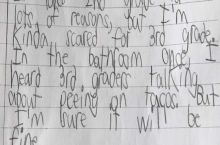 2nd grade
lots of reasons, but I'm
kinda scared for 3rd grade.
In the bathroom once I
heard 3rd graders talking
about peeing on tacos. But
I'm sure it will be
fine